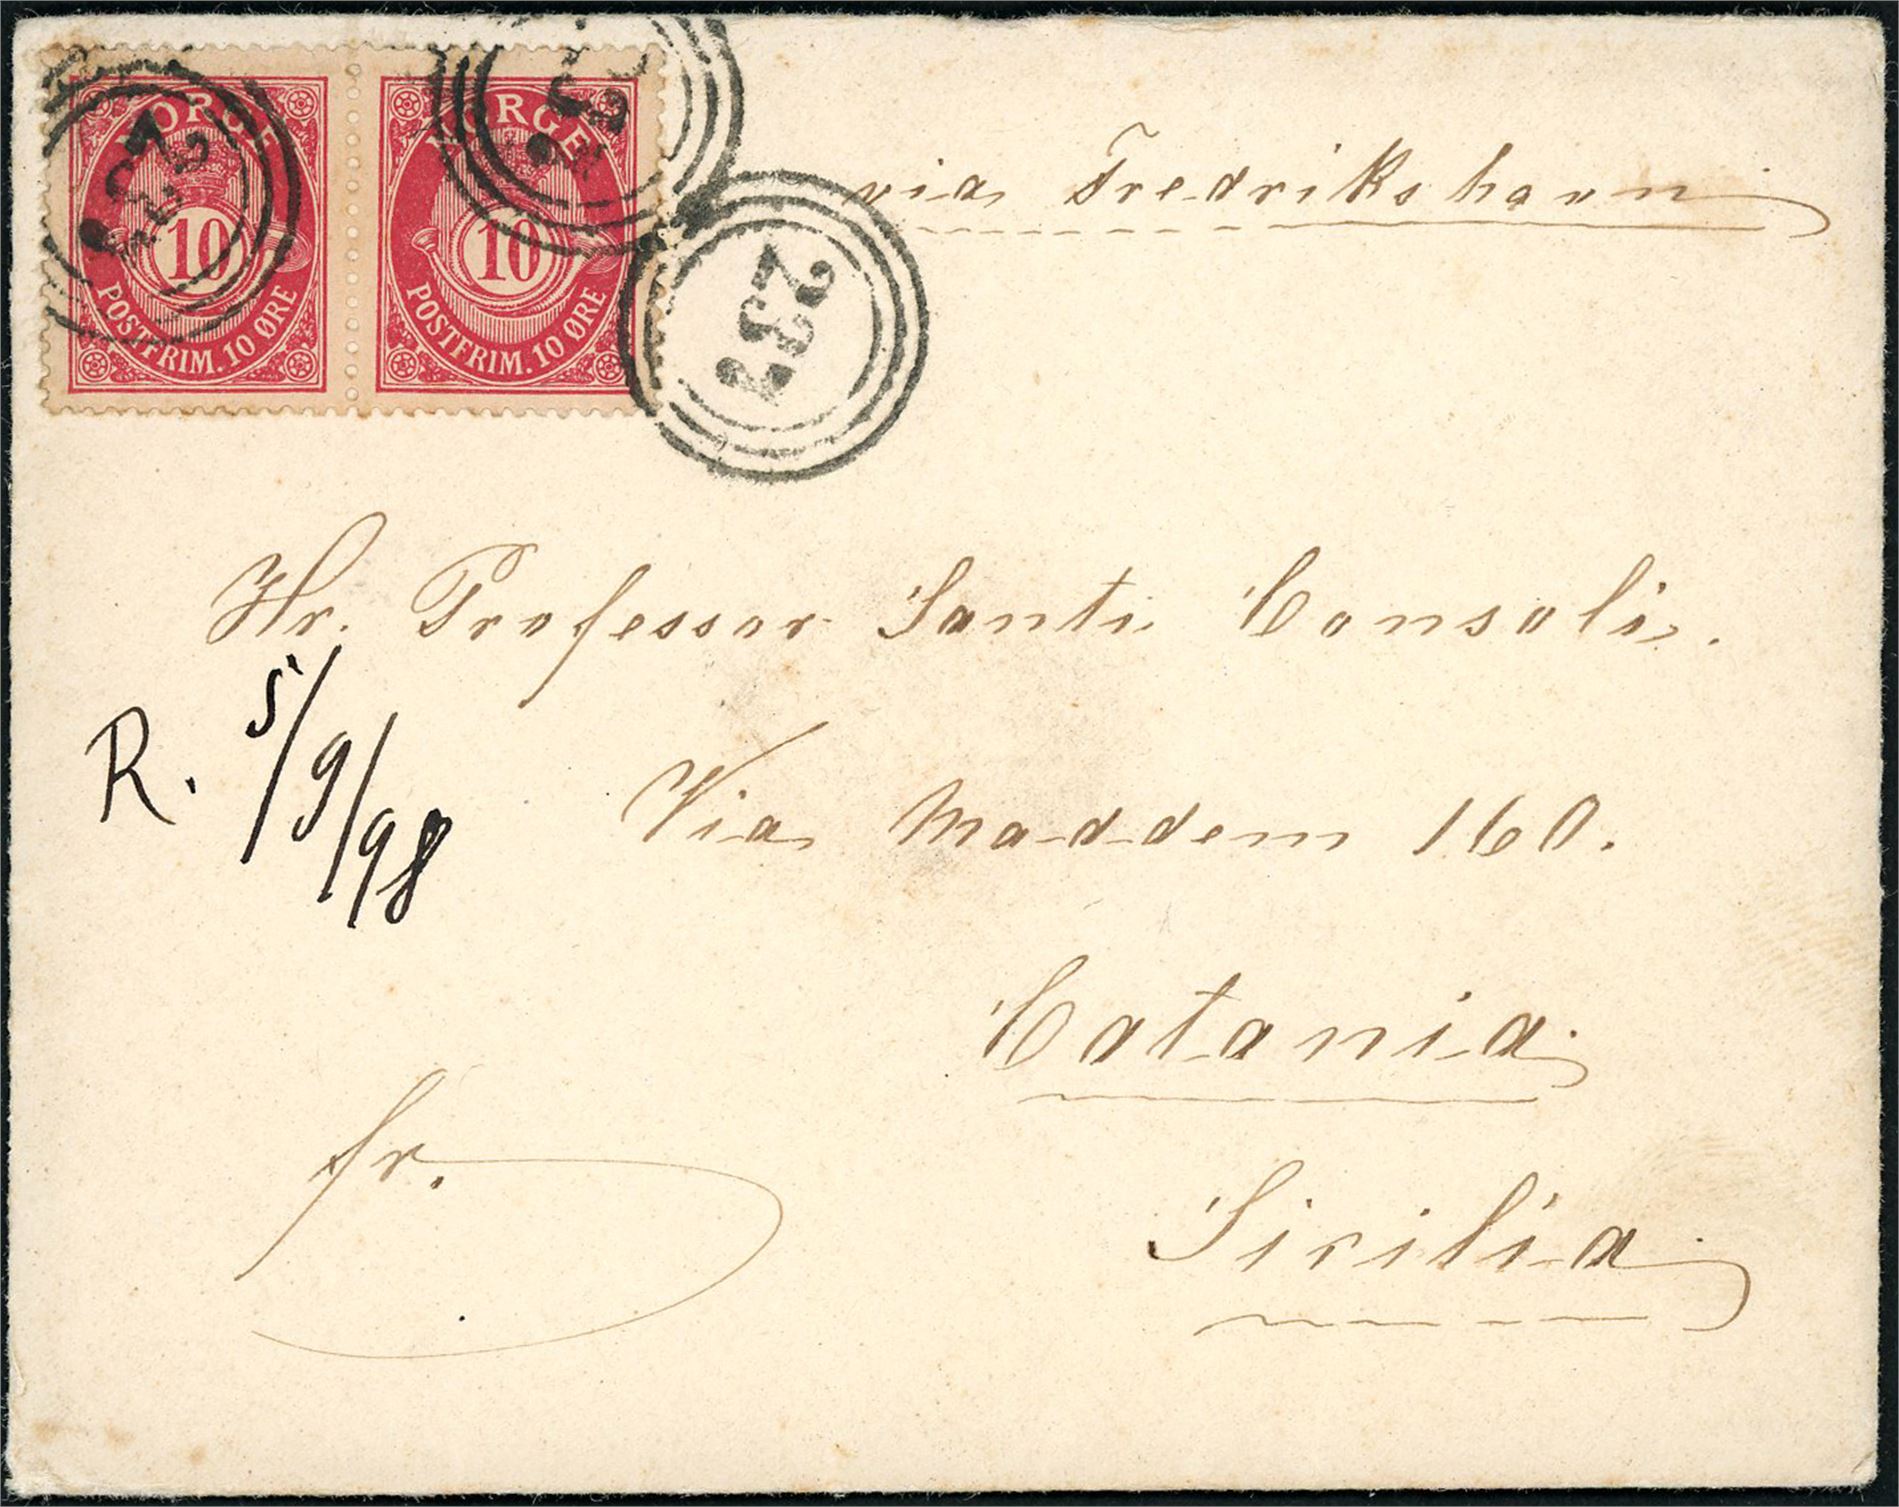 NORGE
10
POSTFRIM. 10 ØRE
NORGE
10
POSTFRIM. 10 ØRE
237
via Fredrikshavn
Hr. Professor Santi Consoli.
R. 5/9/98
Via Maddem 160.
Catania
fr.
Sicilia